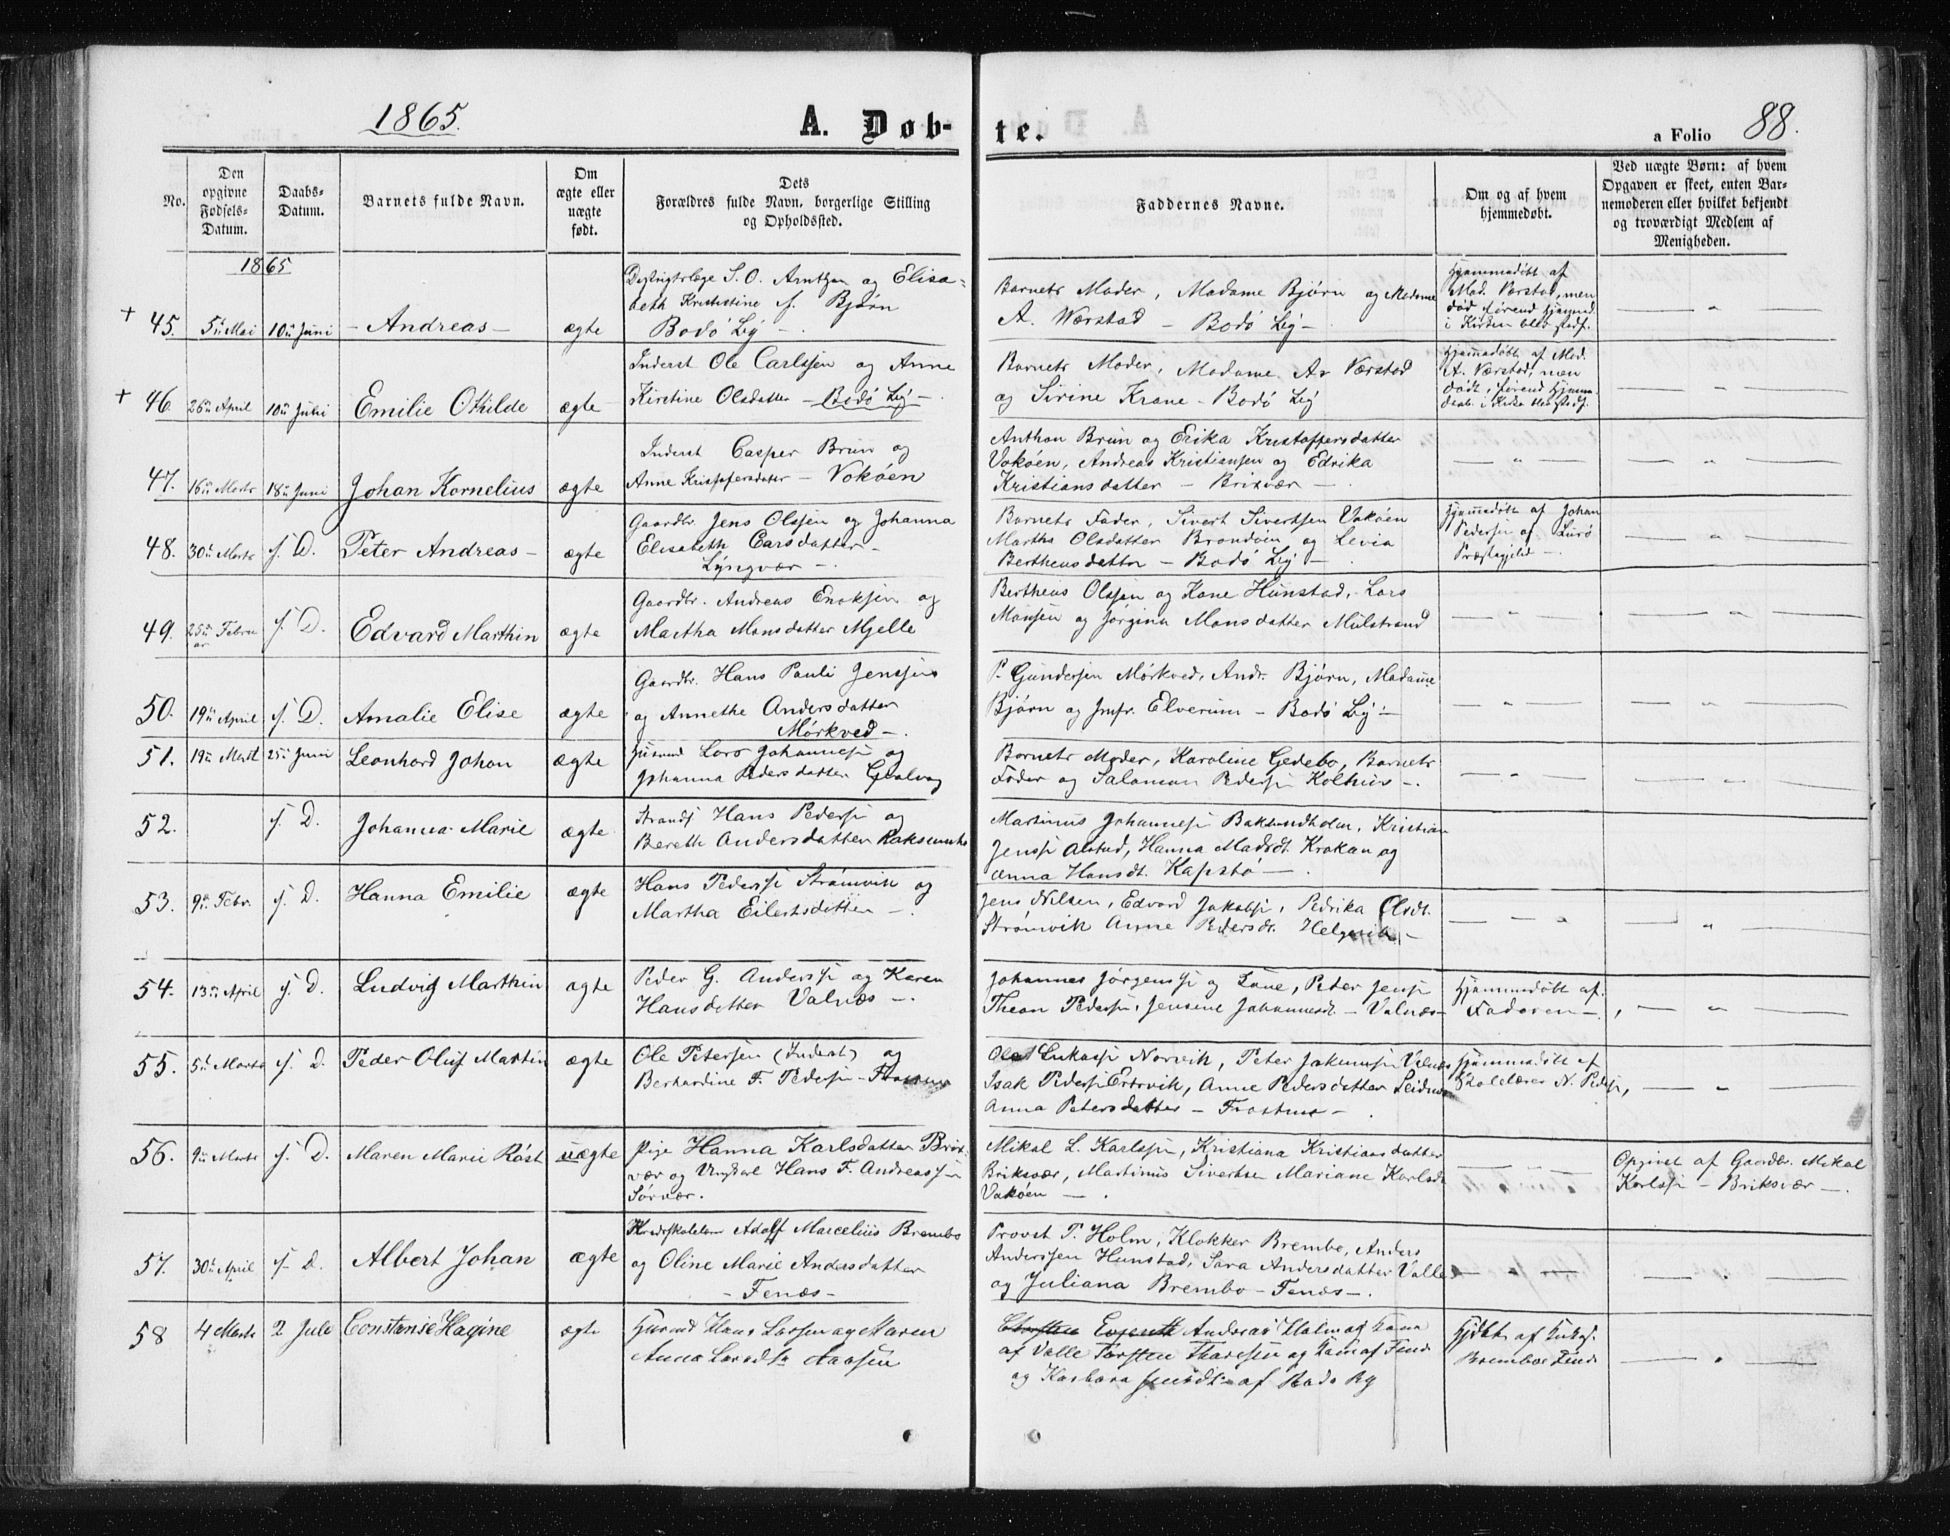 1865.
A. Døb-
te.
a Folio 88.
No.
Den
opgivne
Fødsels-
Datum.
Daabs-
Datum.
Barnets fulde Navn.
Om
ægte eller
uægte
født.
Dets
Forældres fulde Navn, borgerlige Stilling
og Opholdsted.
Faddernes Navne.
Om og af hvem
hjemmedøbt.
Ved uægte Børn: af hvem
Opgaven er skeet, enten Bar-
nemoderen eller hvilket bekjendt
og troværdigt Medlem af
Menigheden.
1865
+ 45. 5te Mai 10de Juni - Andreas - ægte
Arntzen og Elisa-
beth Kristine f. Bjørn
Bodø By -
Barnets Moder, Madame Bjørn og Madame
A. Wærstad - Bodø By -
Hjemmedøbt af
Mad. Værstad, men
død, førend Hjemmed.
i Kirken blev stadf.
+ 46. 26de April 10de Juni Emilie Othilde ægte
Inderst Ole Carlssen og Anne
Kirstine Olsdatter - Bodø By -
Barnets Moder, Madame A. Værstad
og Sirine Krane - Bodø By
Hjemmedøbt af Mad.
A. Værstad, men
død, førend Hjemme-
daab. i Kirken blev stadf.
47. 16de Marts 18de Juni Johan Kornelius ægte
Inderst Casper Brun og
Anne Kristofersdatter - Vokøen
Anthon Brun og Erika Kristoffersdatter
Vokøen, Andreas Kristiansen og Edrika
Kristiansdatter - Brixvær -
48. 30te Marts s. D. Peter Andreas - ægte
Gaardbr. Jens Olssen og Johanna
Elisabeth Carsdatter -
Lyngvær -
Barnets Fader, Sivert Sivertsen Vokøen
Martha Olsdatter Brondøen og Levia
Bertheusdatter - Bodø By -
Hjemmedøbt af Johan
Pedersen af Lurø
Præstegjeld -
49. 25de Febru
ar s. D. Edvard Marthin ægte
Gaardbr. Andreas Enoksen og
Martha Monsdatter Mjelle
Bertheus Olssen og Kone Hunstad, Lars
Monsen og Jørgina Monsdatter Mulstrand
50. 19de April s. D. Amalie Elise ægte
Gaardbr. Hans Pauli Jenssen
og Annethe Andersdatter
Mørkved -
P. Gundersen Mørkved, Andr. Bjørn, Madame
Bjørn og Jmfr. Elverum - Bodø By -
51. 19de Marts 25de Juni Leonhard Johan ægte
Husmd. Lars Johanness. og
Johanna Pedersdatter Gjelvog
Barnets Moder, Karoline Gedebo, Barnets
Fader og Salamon Peders. Kolhus -
52. s. D. Johanna Marie ægte
Strands. Hans Peders. og
Bereth Andersdatter
Martinus Johanness. Baklundholm, Kristian
Jenss. Alstad, Hanna Madsdt. Krokan og
Anna Hansdt. Kapstø -
53. 9de Febr. s. D. Hanna Emilie ægte
Hans Pederss. Strømvik og
Martha Eilertsdatter -
Jens Nilsen, Edvard Jakobs., Pedrika Olsdt.
Strømvik Anne Pedersdr. Helgevik -
54. 13de April s. D. Ludvig Marthin ægte
Peder G. Anderss. og Karen
Hansdatter Valnæs -
Johannes Jørgenss. og Lone, Peder Jens.
Theon Peders., Jensine Johannesdt. - Valnæs -
Hjemmedøbt af
Faderen -
55. 5te Marts s. D. Peder Oluf Martin ægte
Ole Petersen (Inderst) og
Berhardine F. Peders. -
Lukass. Norvik, Peter Jakobs. Valnæs
Isak Peders. Ertsvik, Anne Pedersdatter Seidnæs
Anna Petersdatter - Frostmo -
Hjemmedøbt af
Skolelærer N. Peders.,
56. 9de Marts s. D. Maren Marie Røst uægte
Pige Hanna Karlsdatter Brix-
vær og Ungkarl Hans F. Andreass.
Sørvær.
Mikal L. Karlss., Kristiana Kristiansdatter
Briksvær, Martinus Sivertsen Mariane Karlsdt.
Vokøen -
Opgivet af Gaardbr. Mikal
Karlss. - Briksvær -
57. 30te April s. D. Albert Johan ægte
Kredsskolelærer Adolf Marcelius Brembo
og Oline Marie Andersdatter
- Fenes -
Provst T. Holm, Klokker Brembo, Anders
Anderssen Hunstad, Sara Andersdatter Valle
og Juliana Brembo - Fenes -
58 4 Marts 2 Juli Constense Hagine ægte
Husmd Hans Larssen og Maren
Anna Larsdtr Aaasen
Andreas Holm og Kone
af Valle Torsten Thoresen og Kone af Fenes
og Karbara Jensdt. af Bodø By
Hjdbt af Lukas.
Bremboe Fenes